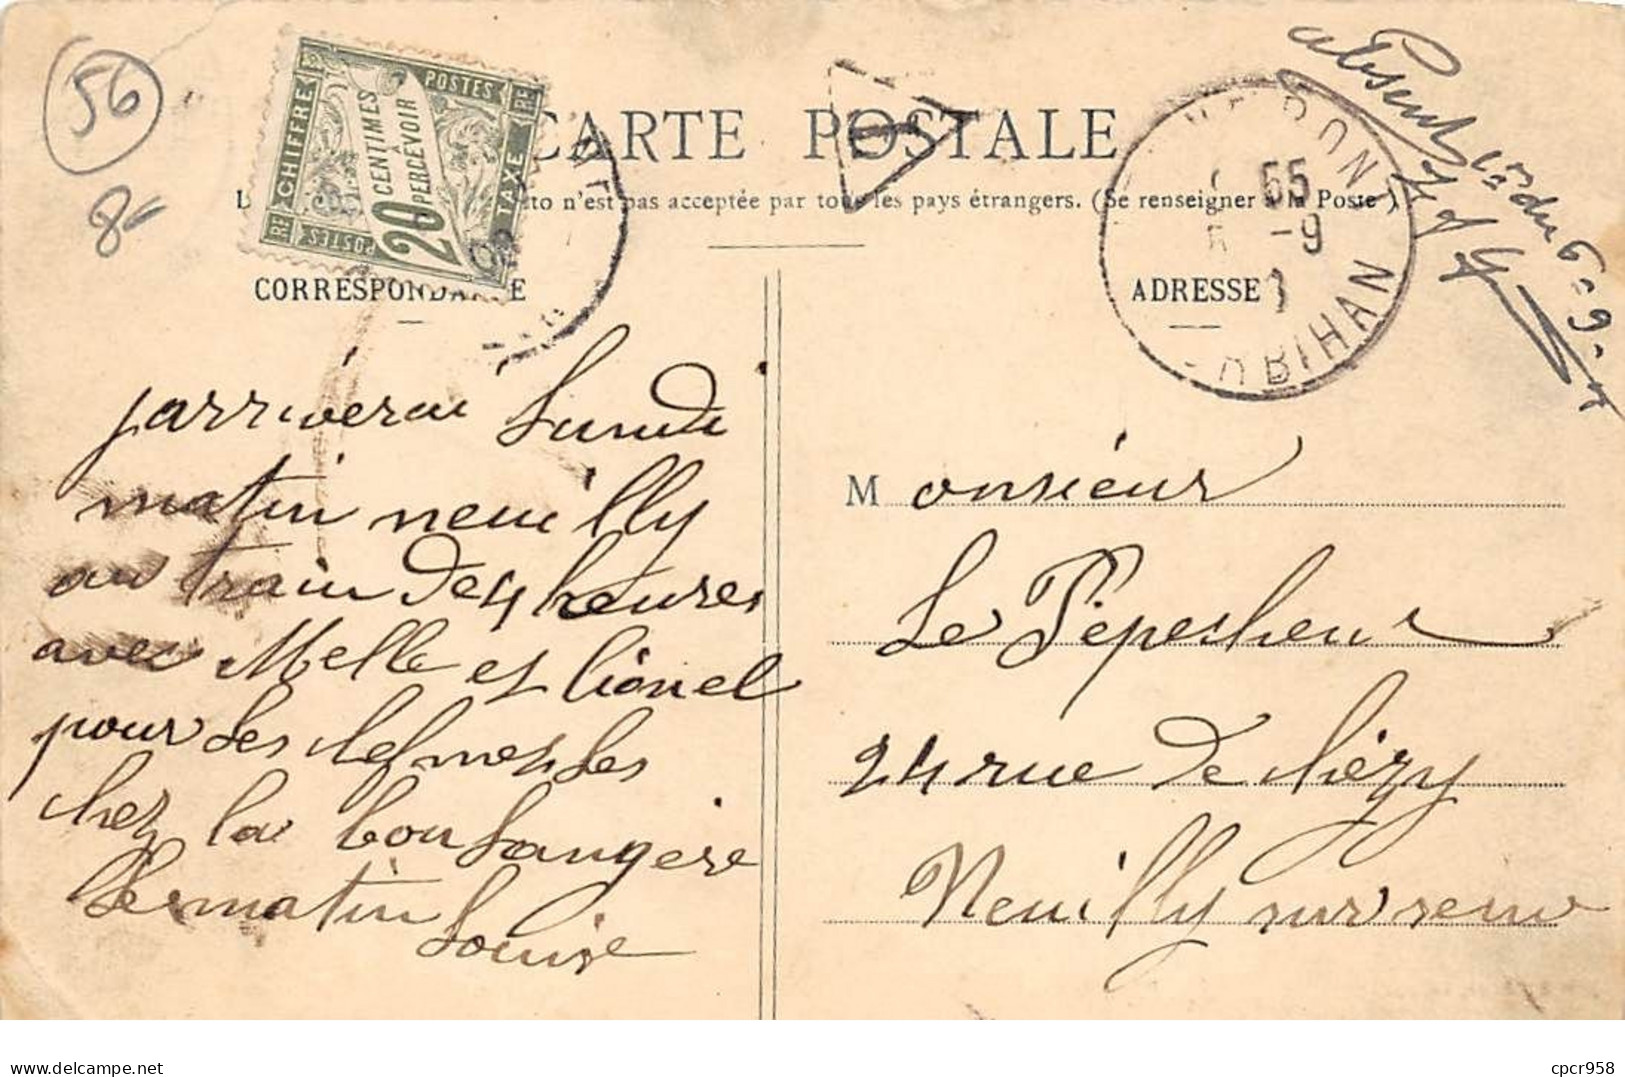 56
8-
CHIFFRE
TAXE
POSTES
RF
20 CENTIMES
À
PERCEVOIR
CARTE POSTALE
n'est pas acceptée par tous les pays étrangers. (Se renseigner à la Poste)
CORRESPONDANCE
ADRESSE
55
-9
ORBIHAN
absent
du 6-9-
jarriverai Lundi
matin neuilly
au train de 4 heures
avec Melle et lionel
pour les
chez la boulangère
le matin
Louise
Monsieur
Le Pépesheur
24 rue de chézy
Neuilly sur seine
delcampe.net
cpcr958